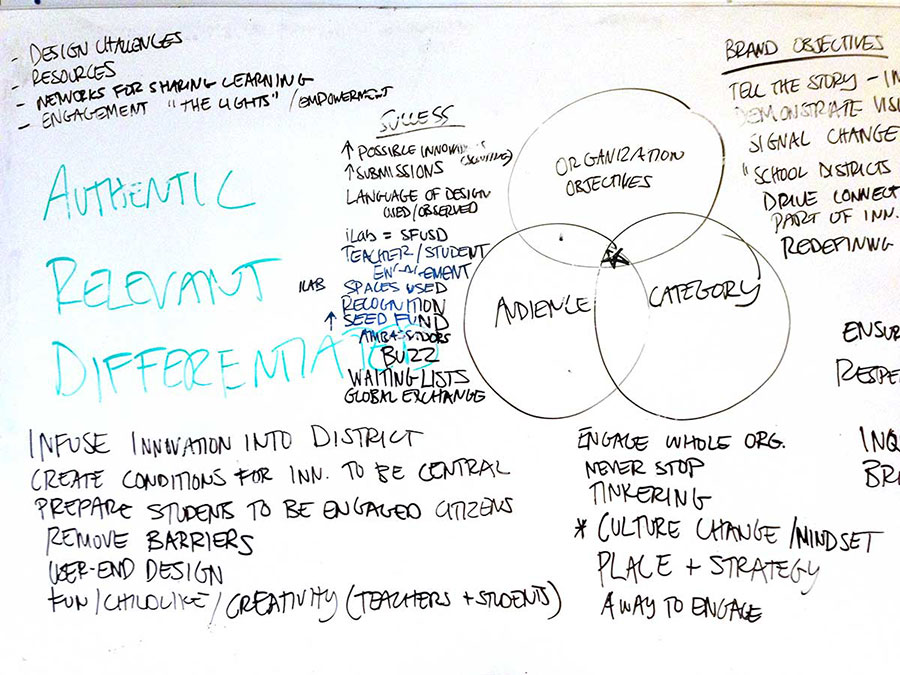 - DESIGN CHALLENGES
- RESOURCES
- NETWORKS FOR SHARING LEARNING
- ENGAGEMENT "THE LIGHTS" / EMPOWERMENT
AUTHENTIC
RELEVANT
DIFFERENTIATED
SUCCESS
↑ POSSIBLE
↑ SUBMISSIONS
LANGUAGE OF DESIGN
USED/OBSERVED
iLab = SFUSD
TEACHER/STUDENT
ENGAGEMENT
ILAB SPACES USED
RECOGNITION
↑ SEED FUND
AMBASSADORS
BUZZ
WAITING LISTS
GLOBAL EXCHANGE
ORGANIZATION
OBJECTIVES
AUDIENCE
CATEGORY
BRAND OBJECTIVES
TELL THE STORY - IN
DEMONSTRATE VIS
SIGNAL CHANGE
"SCHOOL DISTRICTS
DRIVE CONNECT
PART OF INN.
REDEFINING
ENSUR
RESPE
INQ
BR
INFUSE INNOVATION INTO DISTRICT
CREATE CONDITIONS FOR INN. TO BE CENTRAL
PREPARE STUDENTS TO BE ENGAGED CITIZENS
REMOVE BARRIERS
USER-END DESIGN
FUN/CHILDLIKE/CREATIVITY (TEACHERS + STUDENTS)
ENGAGE WHOLE ORG.
NEVER STOP
TINKERING
* CULTURE CHANGE/MINDSET
PLACE + STRATEGY
A WAY TO ENGAGE